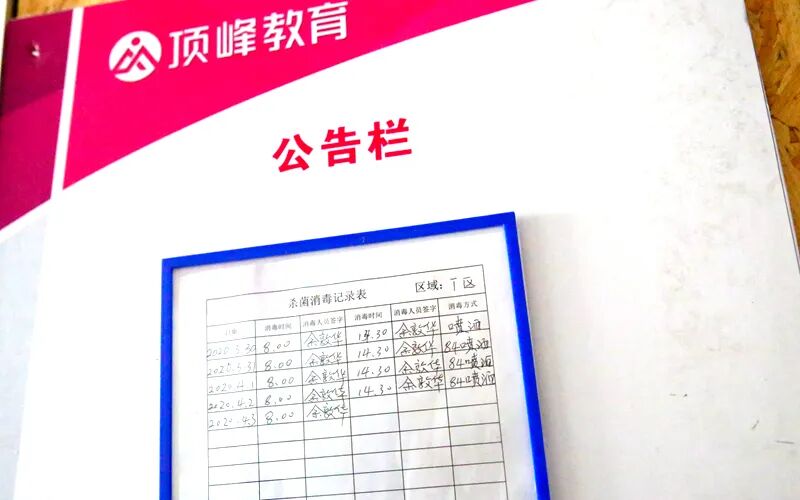 顶峰教育
公告栏
杀菌消毒记录表 区域: 丁区
日期 消毒时间 消毒人员签字 消毒时间 消毒人员签字 消毒方式
2020.3.30 8.00 余敦华 14.30 余敦华 喷洒
2020.3.31 8.00 余敦华 14.30 余敦华 84喷洒
2020.4.1 8.00 余敦华 14.30 余敦华 84喷洒
2020.4.2 8.00 余敦华 14.30 余敦华 84喷洒
2020.4.3 8.00 余敦华